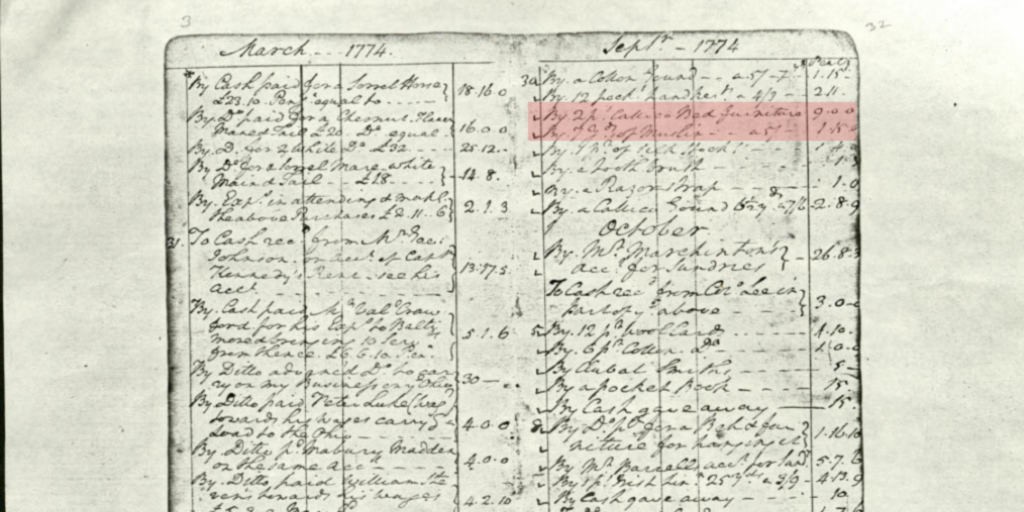 3
32
March - - 1774.
By Cash paid for a Sorrel Horse
£23.10. Pens. equal to - - - - - 18.16.0
By Do. paid for a Chesnut
Maned Tail £20. Do. equal 16.0.0
By D. for 2 White Do. £32 - - - 25.12.-
By Do. for a Sorrel Mare white
Main & Tail - - - £18 - - - - 14.8.
By Exps. in attending &
the above Purchases £2.11..6 2.1.3
31. To Cash recd. from Mr.
Johnson on acct. of Captn.
Kennedy's Rent - see his 13.17.5
acct.
By Cash paid Mr. Val. Craw
ford for his Exps. to Balti
more & bringing 10 Serv 5.1.6
from thence £6.6.10
By Ditto advanced Do. to car
ry on my Business on 30 —
By Ditto paid Peter Luke
towards his wages carryg. 4.0.0
to the
By Ditto pd. Mabury Madden
on the same acct. - - - 4.0.0
By Ditto paid William Ste
vens towards his wages 4.2.10
Septr. - 1774
30 By a Cotton Gound - - a 5/ - 7 - 1.15-
By 12 pockt. handkerfs. a 4/3 - - 2.11.
By 2 ps. Callico Bed furniture 9.0.0
By 7 Yds. of Muslin - - a 5/ - 1.15
By 1 Pr. of Silk Stockgs. - -
By a tooth brush - - -
By a Razor Strap - - - - 1.0
By a Callico Gound 6½ yds. a 7/6 - 2.8.9
October
By Mr. Marchinton's
acct. for Sundries - 26.8.3
To Cash recd. from Colo. Lee in
part of ye. above - - 3.0.0
5 By 12 pr. wool Cards - - - - 4.10.
By 6 pr. Cotton Do. - - - - 1.10.0
By Aubal Smiths - - - - 5 -
By a pocket Book - - - - 15
By Cash gave away ——— 15
8 By Do. pd. for a Bell & fur
niture for hanging it 1.16.10
By Mr. Barrell acct. for 5.7.6
By 1 ps. Irish Lin. 25 yds. a 3/9 - 4.13.9
By Cash gave away - - - - 10